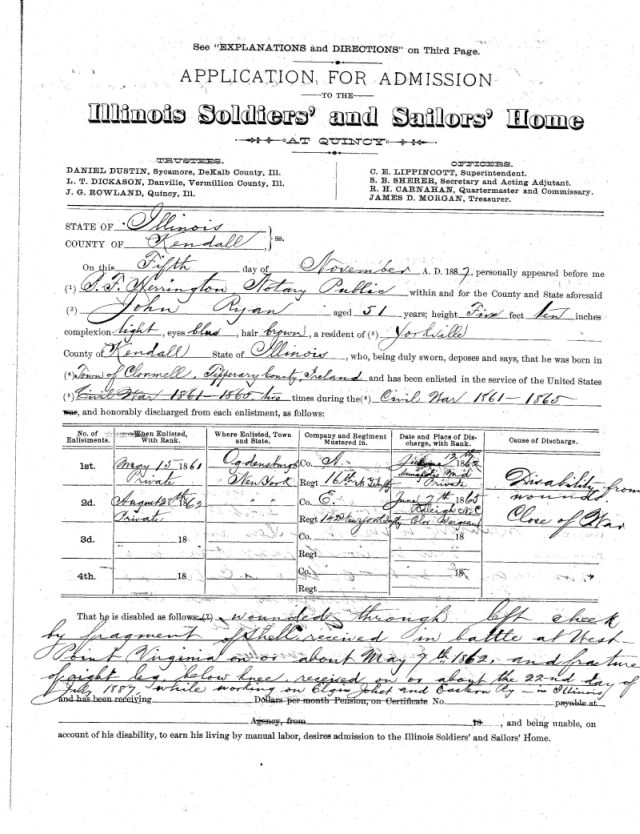 See "EXPLANATIONS and DIRECTIONS" on Third Page.
APPLICATION FOR ADMISSION
TO THE
Illinois Soldiers' and Sailors' Home
AT QUINCY
TRUSTEES.
DANIEL DUSTIN, Sycamore, DeKalb County, Ill.
L. T. DICKASON, Danville, Vermillion County, Ill.
J. G. ROWLAND, Quincy, Ill.
OFFICERS.
C. E. LIPPINCOTT, Superintendent.
S. B. SHERER, Secretary and Acting Adjutant.
R. H. CARNAHAN, Quartermaster and Commissary.
JAMES D. MORGAN, Treasurer.
STATE OF Illinois
COUNTY OF Kendall, } ss.
On this Fifth day of November A. D. 1887, personally appeared before me
(1) Herrington Notary Public within and for the County and State aforesaid
(2) John Ryan aged 51 years; height Five feet ten inches
complexion light, eyes blue, hair brown, a resident of (3) Yorkville
County of Kendall State of Illinois, who, being duly sworn, deposes and says, that he was born in
(4) Town of Clonmell, Tipperary County, Ireland and has been enlisted in the service of the United States
(5) Civil War 1861-1865, two times during the (6) Civil War 1861-1865
war, and honorably discharged from each enlistment, as follows:
No. of Enlistments. When Enlisted, with Rank. Where Enlisted, Town and State. Company and Regiment Mustered in. Date and Place of Discharge, with Rank. Cause of Discharge.
1st. May 15 1861 Private Ogdensburgh New York Co. A. Regt 16th N.Y. Infty 12th 1862 Annapolis Md Private Disability from wounds
2d. August 28th 1862 Private " " Co. E. Regt 142 New York Infty June 7th 1865 Raleigh N.C. Color Sergeant Close of War
3d. 18 Co. Regt 18
4th. 18 Co. Regt 18
That he is disabled as follows: (7) wounded through left cheek
by fragment of shell received in battle at West
Point Virginia on or about May 7th 1862, and fracture
of right leg below knee, received on or about the 22nd day of
July 1887, while working on Elgin Joliet and Eastern Ry - in Illinois
and has been receiving Dollars per month Pension, on Certificate No. payable at
Agency, from 18 , and being unable, on
account of his disability, to earn his living by manual labor, desires admission to the Illinois Soldiers' and Sailors' Home.